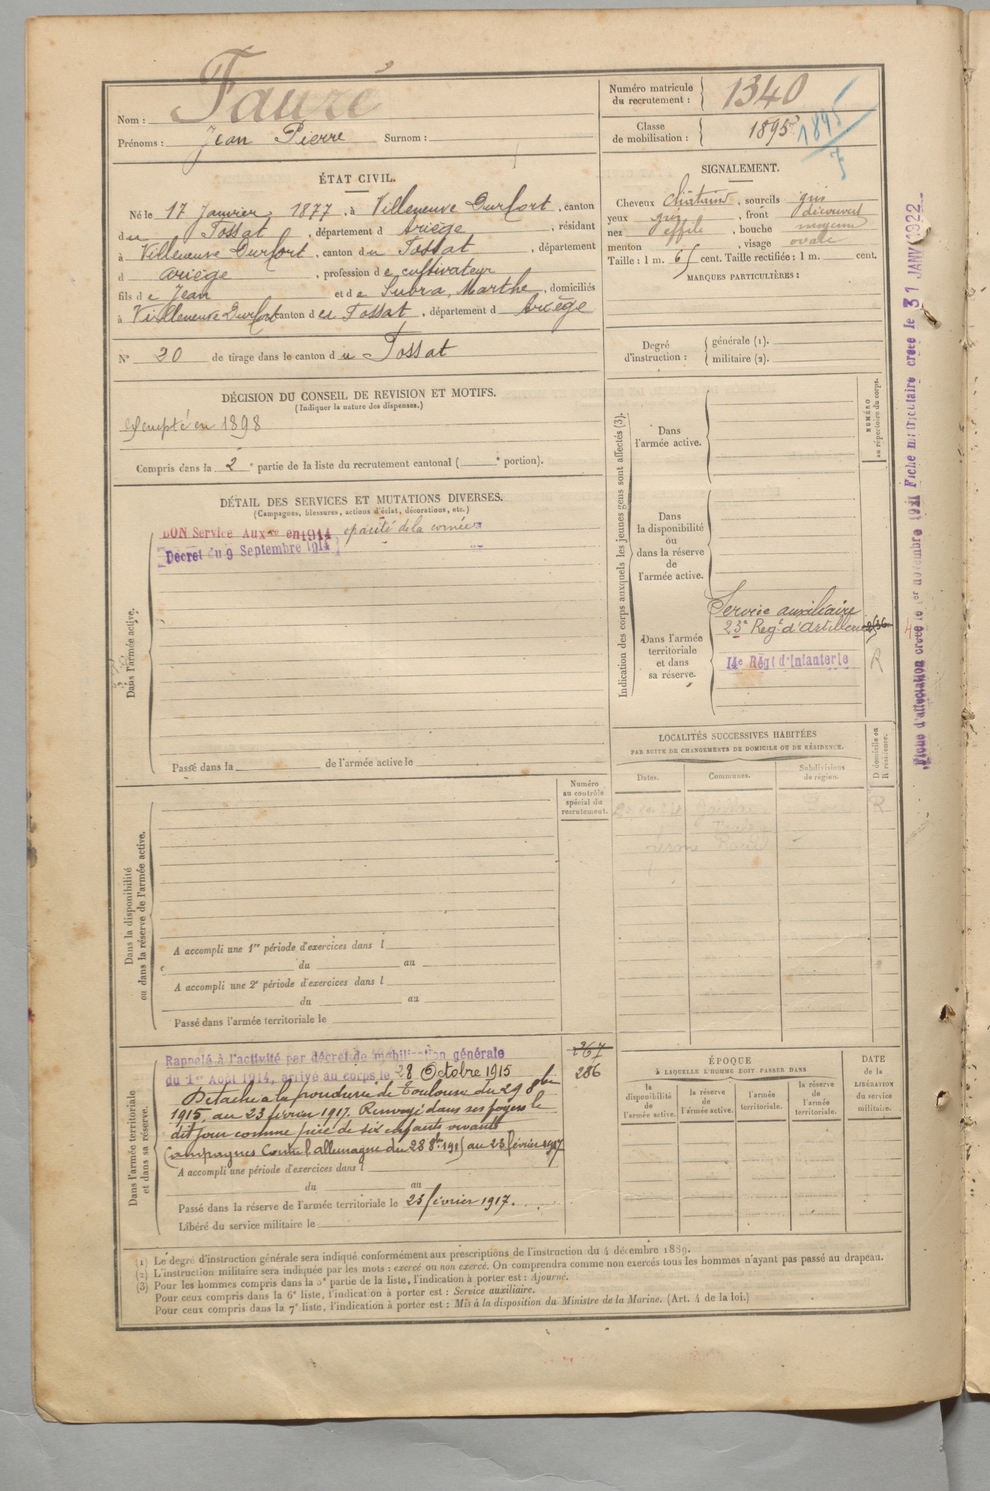 Nom : Faure
Prénoms : Jean Pierre Surnom :
Numéro matricule du recrutement : 1340
Classe de mobilisation : 1895
1895
ÉTAT CIVIL.
Né le 17 Janvier 1877, à Villeneuve Durfort, canton
du Fossat, département d Ariège, résidant
à Villeneuve Durfort, canton du Fossat, département
d Ariège, profession de cultivateur
fils de Jean et de Subra, Marthe, domiciliés
à Villeneuve Durfort canton du Fossat, département d Ariège
N° 20 de tirage dans le canton du Fossat
SIGNALEMENT.
Cheveux châtains, sourcils gris
yeux gris, front découvert
nez effilé, bouche moyenne
menton , visage ovale
Taille : 1 m. 65 cent. Taille rectifiée : 1 m. cent.
MARQUES PARTICULIÈRES :
Degré d'instruction : générale (1).
militaire (2).
DÉCISION DU CONSEIL DE REVISION ET MOTIFS.
(Indiquer la nature des dispenses.)
Exempté en 1898
Compris dans la 2e partie de la liste du recrutement cantonal ( e portion).
DÉTAIL DES SERVICES ET MUTATIONS DIVERSES.
(Campagnes, blessures, actions d'éclat, décorations, etc.)
BON Service Auxre en 1914 opacité de la cornée
Décret du 9 Septembre 1914
Dans l'armée active.
Passé dans la de l'armée active le
Indication des corps auxquels les jeunes gens sont affectés (3).
NUMÉRO au répertoire du corps.
Dans l'armée active.
Dans la disponibilité ou dans la réserve de l'armée active.
Dans l'armée territoriale et dans sa réserve.
Service auxiliaire
23e Regt d'Artillerie
14e Régt d'Infanterie
R
LOCALITÉS SUCCESSIVES HABITÉES
PAR SUITE DE CHANGEMENTS DE DOMICILE OU DE RÉSIDENCE.
Dates.
Communes.
Subdivisions de région.
D domicile ou R résidence.
R
Numéro au contrôle spécial du recrutement.
Dans la disponibilité ou dans la réserve de l'armée active.
A accompli une 1re période d'exercices dans l
du au
A accompli une 2e période d'exercices dans l
du au
Passé dans l'armée territoriale le
Dans l'armée territoriale et dans sa réserve.
267
286
Rappelé à l'activité par décret de mobilisation générale
du 1er Août 1914, arrivé au corps le 28 Octobre 1915
Détaché à la poudrerie de Toulouse du 29 8bre
1915, au 23 février 1917. Renvoyé dans ses foyers le
dit jour comme père de six enfants vivants
Campagnes Contre l'allemagne du 28 8bre 1915 au 23 février 1917
A accompli une période d'exercices dans l
du au
Passé dans la réserve de l'armée territoriale le 23 février 1917.
Libéré du service militaire le
ÉPOQUE
À LAQUELLE L'HOMME DOIT PASSER DANS
la disponibilité de l'armée active.
la réserve de l'armée active.
l'armée territoriale.
la réserve de l'armée territoriale.
DATE de la LIBÉRATION du service militaire.
(1) Le degré d'instruction générale sera indiqué conformément aux prescriptions de l'instruction du 4 décembre 1889.
(2) L'instruction militaire sera indiquée par les mots : exercé ou non exercé. On comprendra comme non exercés tous les hommes n'ayant pas passé au drapeau.
(3) Pour les hommes compris dans la 5e partie de la liste, l'indication à porter est : Ajourné.
Pour ceux compris dans la 6e liste, l'indication à porter est : Service auxiliaire.
Pour ceux compris dans la 7e liste, l'indication à porter est : Mis à la disposition du Ministre de la Marine. (Art. 4 de la loi.)
d'affectation créée le 1er novembre 1921 Fiche matriculaire créée le 31 JANV 1922